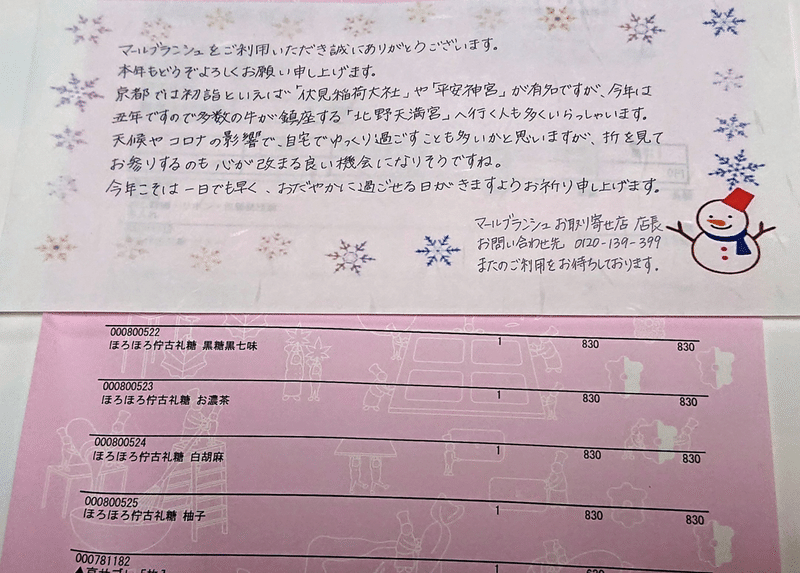 マールブランシュをご利用いただき誠にありがとうございます。
本年もどうぞよろしくお願い申し上げます。
京都では初詣といえば「伏見稲荷大社」や「平安神宮」が有名ですが、今年は
丑年ですので多数の牛が鎮座する「北野天満宮」へ行く人も多くいらっしゃいます。
天候やコロナの影響で、自宅でゆっくり過ごすことも多いかと思いますが、折を見て
お参りするのも心が改まる良い機会になりそうですね。
今年こそは一日でも早く、おだやかに過ごせる日がきますようお祈り申し上げます。
マールブランシュ お取り寄せ店 店長
お問い合わせ先 0120-139-399
またのご利用をお待ちしております。
000800522
ほろほろ佇古礼糖 黒糖黒七味 1 830 830
000800523
ほろほろ佇古礼糖 お濃茶 1 830 830
000800524
ほろほろ佇古礼糖 白胡麻 1 830 830
000800525
ほろほろ佇古礼糖 柚子 1 830 830
000781182